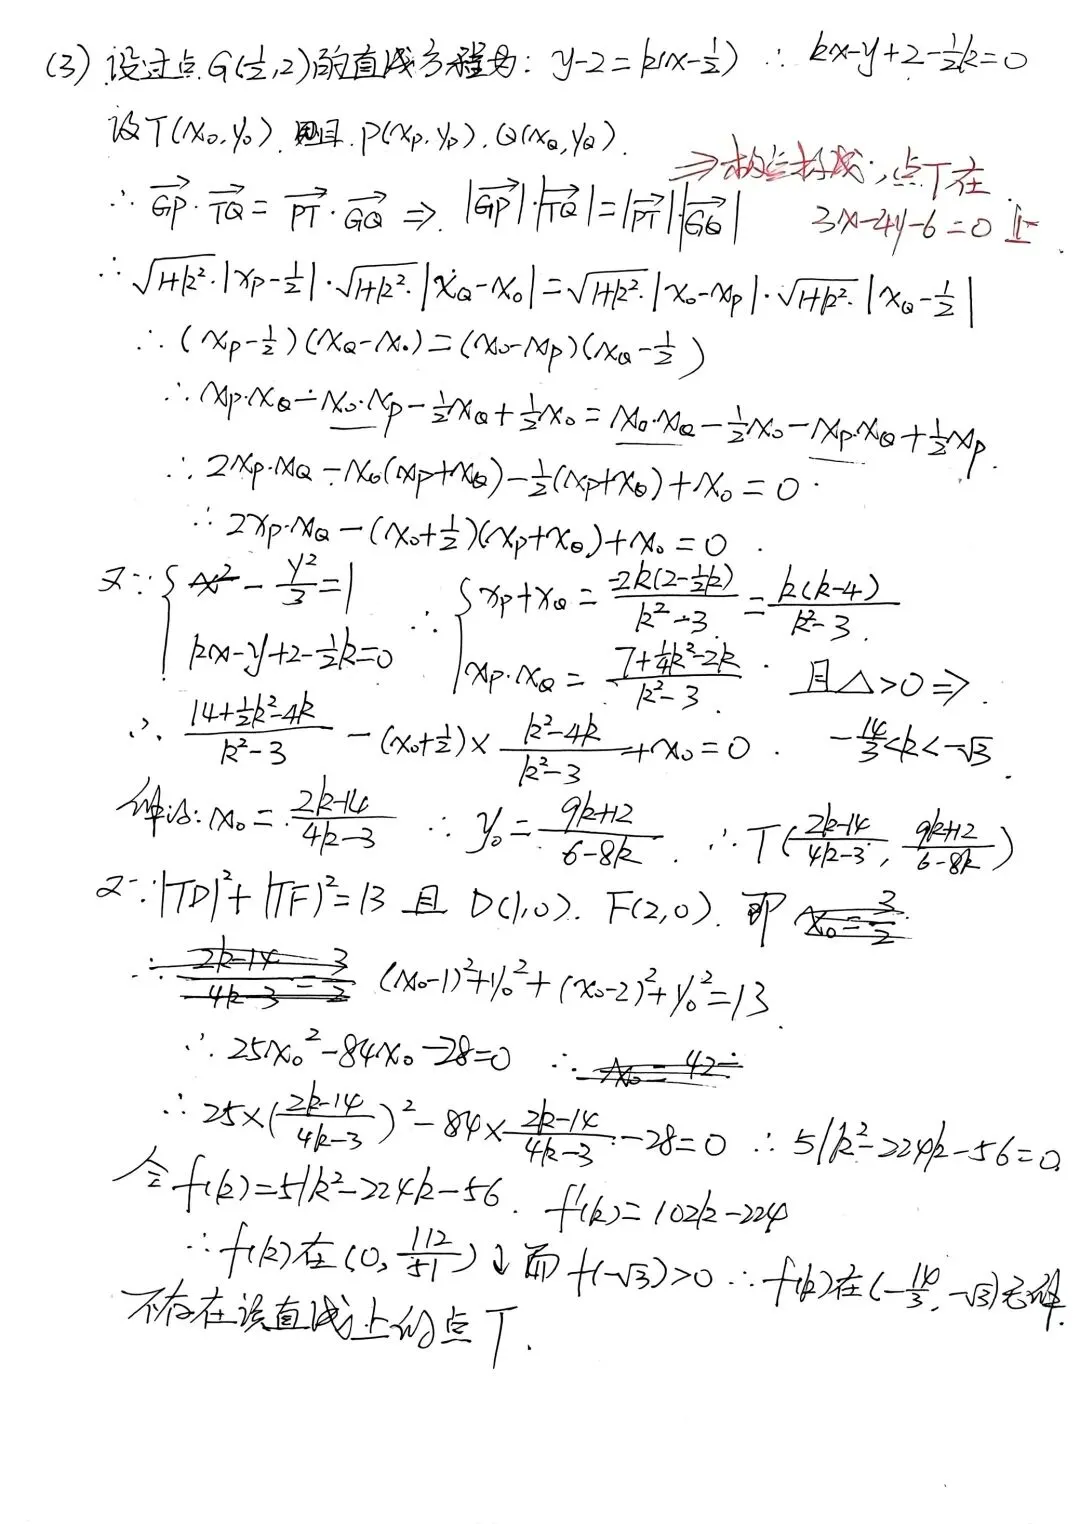 (3) 设过点G(½,2)的直线方程为: y-2=k(x-½) ∴ kx-y+2-½k=0
设T(x₀,y₀) 则 P(x_P,y_P), Q(x_Q,y_Q).
⇒极点极线; 点T在
3x-4y-6=0上.
∴ GP⃗·TQ⃗ = PT⃗·GQ⃗ ⇒ |GP⃗|·|TQ⃗|=|PT⃗|·|GQ⃗|
∴ √(1+k²)·|x_P-½|·√(1+k²)·|x_Q-x₀|=√(1+k²)·|x₀-x_P|·√(1+k²)·|x_Q-½|
∴ (x_P-½)(x_Q-x₀)=(x₀-x_P)(x_Q-½)
∴ x_P·x_Q-x₀·x_P-½x_Q+½x₀=x₀·x_Q-½x₀-x_P·x_Q+½x_P.
∴ 2x_P·x_Q-x₀(x_P+x_Q)-½(x_P+x_Q)+x₀=0.
∴ 2x_P·x_Q-(x₀+½)(x_P+x_Q)+x₀=0.
又∵ { x²-y²/3=1 ∴ { x_P+x_Q=-2k(2-½k)/(k²-3)=k(k-4)/(k²-3).
kx-y+2-½k=0 x_P·x_Q=(7+¼k²-2k)/(k²-3). 且△>0⇒.
∴ (14+½k²-4k)/(k²-3)-(x₀+½)×(k²-4k)/(k²-3)+x₀=0. -14/3<k<-√3.
解得: x₀=(2k-14)/(4k-3) ∴ y₀=(9k+12)/(6-8k). ∴ T((2k-14)/(4k-3), (9k+12)/(6-8k))
又∵ |TD|²+|TF|²=13 且 D(1,0). F(2,0). 即 x₀=3/2
∴ (2k-14)/(4k-3)=3/2 (x₀-1)²+y₀²+(x₀-2)²+y₀²=13.
∴ 25x₀²-84x₀-28=0 ∴ x₀=42±
∴ 25×((2k-14)/(4k-3))²-84×(2k-14)/(4k-3)-28=0 ∴ 51k²-224k-56=0
令f(k)=51k²-224k-56. f'(k)=102k-224
∴ f(k)在(0,112/51)↓而f(-√3)>0 ∴ f(k)在(-14/3,-√3)无解.
不存在该直线上的点T.